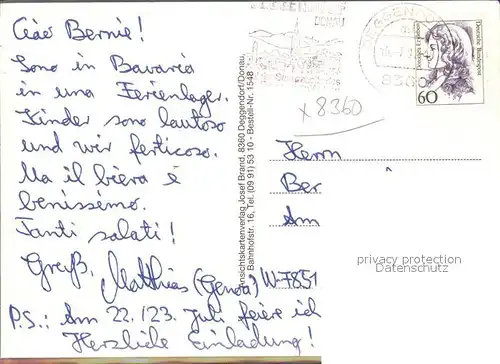 Ciao Bernie!
Sono in Bavaria
in una Ferienlager.
Kinder sono lautoso
und wir ferticoso.
Ma il biera é
benissimo.
Tanti salati!
Gruß, Matthias (Genoa)
P.S.: Am 22./23. Juli feiere ich
Herzliche Einladung!
Ansichtskartenverlag Josef Brand, 8360 Deggendorf/Donau,
Bahnhofstr. 16, Tel. (09 91) 53 10 · Bestell-Nr. 1548
DONAU
8360
Deutsche Bundespost
60
x 8360
Herrn
Ber
Am
W-7851
privacy protection
Datenschutz